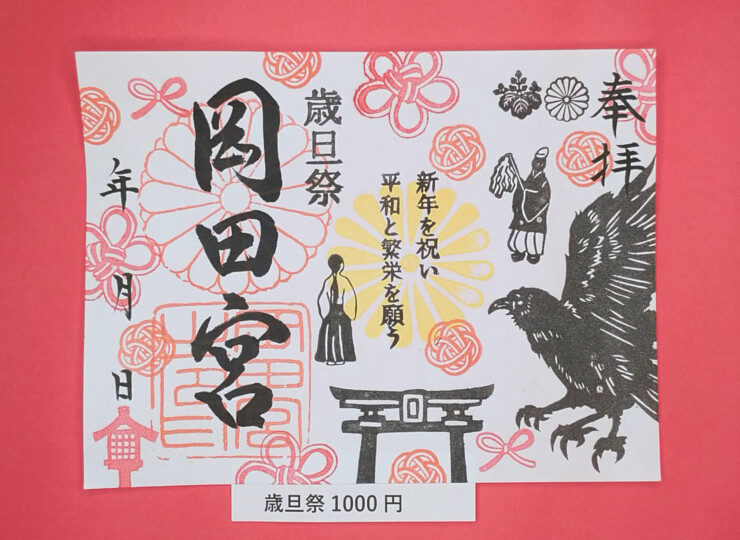 奉拝
新年を祝い
平和と繁栄を願う
歳旦祭
岡田宮
年 月 日
歳旦祭 1000 円